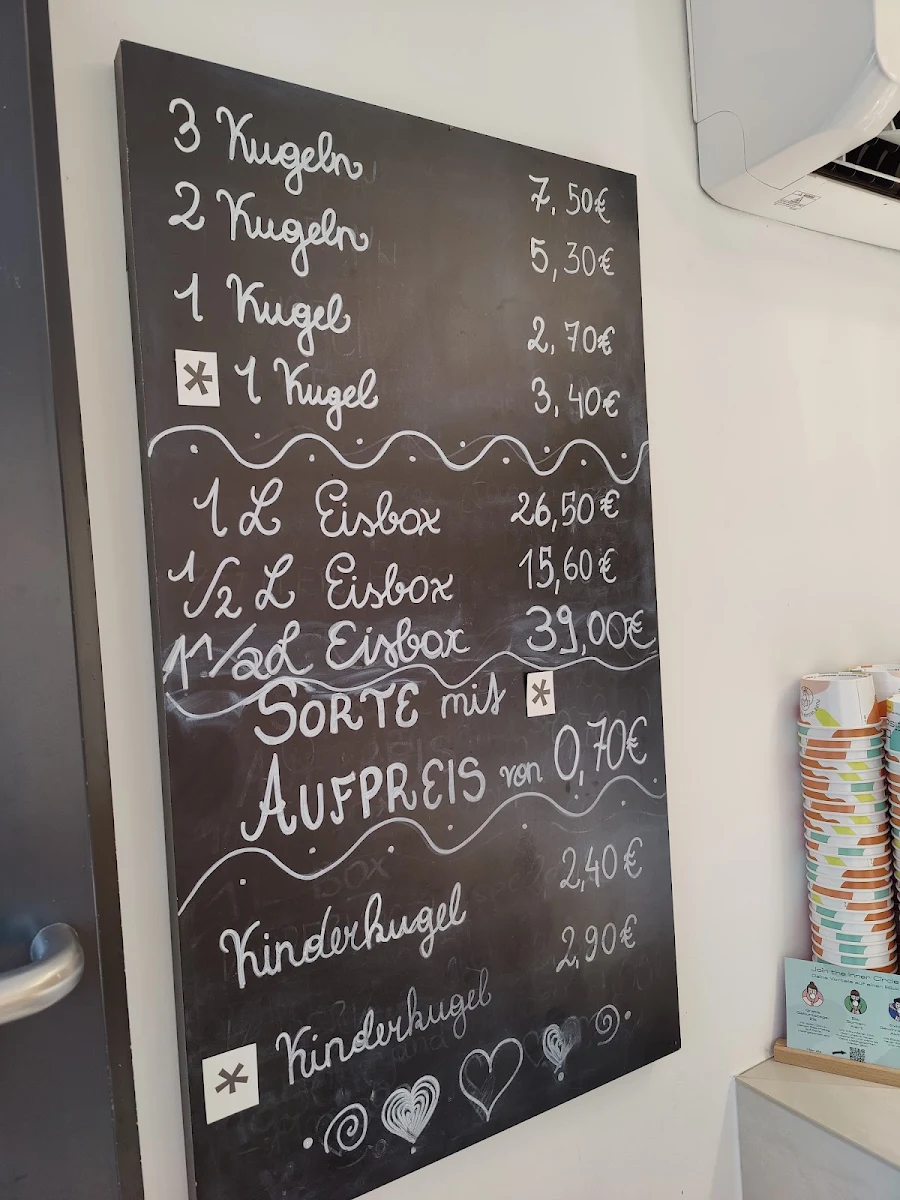 3 Kugeln 7.50€
2 Kugeln 5,30€
1 Kugel 2,70€
* 1 Kugel 3,40€
1 L Eisbox 26,50€
1/2 L Eisbox 15,60€
1 1/2 L Eisbox 39,00€
SORTE mit *
AUFPREIS von 0,70€
Kinderkugel 2,40€
* Kinderkugel 2,90€
Join the Inner Circle